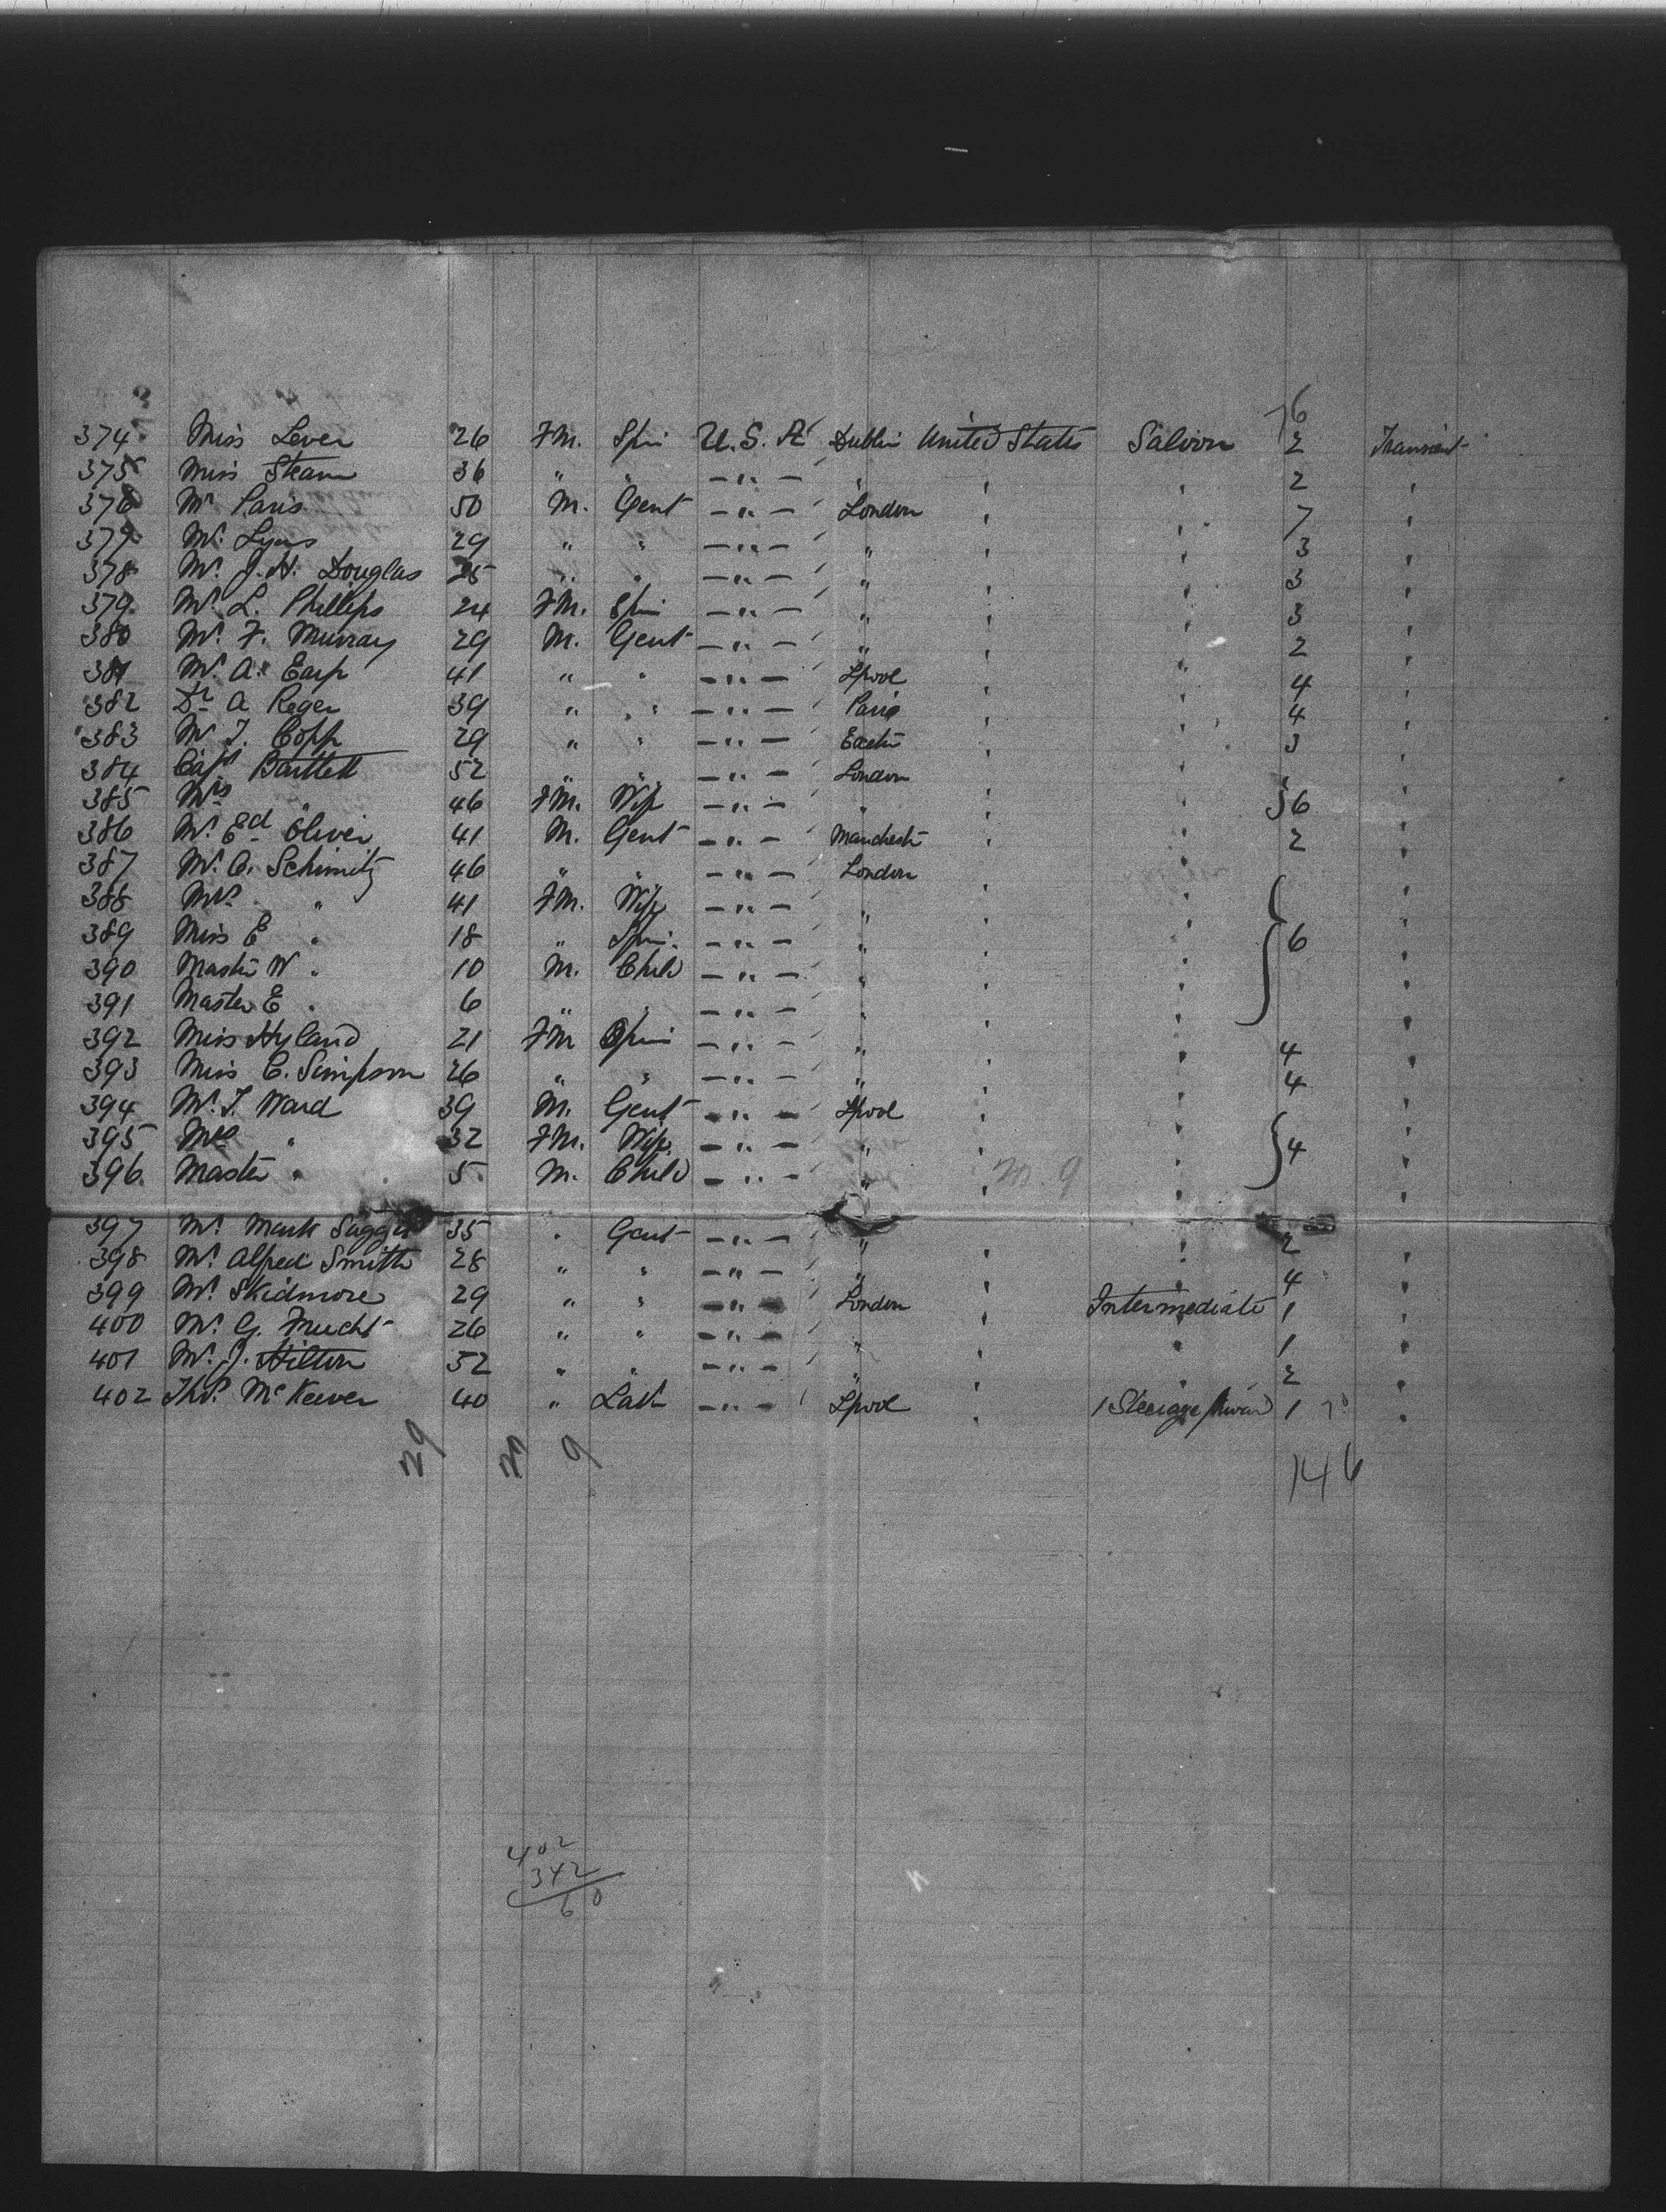 76
374 Miss Lever 26 FM. Spin U.S.A Dublin United States Saloon 2 Transient
375 Miss Stearn 36 " " — " — " " " 2 "
376 Mr Paris 50 M. Gent — " — London " " 7 "
377 Mr. Lyons 29 " " — " — " " " 3 "
378 Mr. J.H. Douglas 25 " " — " — " " " 3 "
379 Mr. L. Phillips 24 FM. Spin — " — " " " 3 "
380 Mr. F. Murray 29 M. Gent — " — " " " 2 "
381 Mr. A. Earp 41 " " — " — Lpool " " 4 "
382 Dr A Reger 39 " " — " — Paris " " 4 "
383 Mr J. Copp 29 " " — " — Exeter " " 3 "
384 Capt Bartlett 52 " " — " — London " " "
385 Mrs " 46 FM. Wife — " — " " " } 6 "
386 Mr. Ed Oliver 41 M. Gent — " — Manchestr " " 2 "
387 Mr. C. Schimitz 46 " " — " — London " " "
388 Mrs. " 41 FM. Wife — " — " " " "
389 Miss E " 18 " Spin. — " — " " " } 6 "
390 Master W " 10 M. Child — " — " " " "
391 Master E " 6 " " — " — " " " "
392 Miss Hyland 21 FM Spin — " — " " " 4 "
393 Miss C. Simpson 26 " " — " — " " " 4 "
394 Mr. J. Ward 39 M. Gent — " — Lpool " " "
395 Mrs " 32 FM. Wife — " — " " " } 4 "
396 Master " 5 M. Child — " — " " m. 9 " "
397 Mr. Mark 35 " Gent — " — " " " 2 "
398 Mr. Alfred Smith 28 " " — " — " " " 4 "
399 Mr. Skidmore 29 " " — " — London " Intermediate 1 "
400 Mr. G. Frucht 26 " " — " — " " " 1 "
401 Mr. J. Hilton 32 " " — " — " " " 2 "
402 Thos. McKeever 40 " Lab — " — Lpool " 1 Steerage 1 "
29 9
146
402
342
60